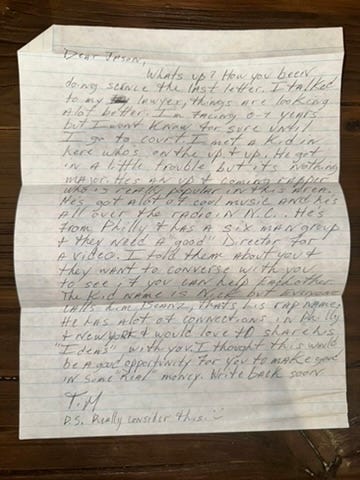 Dear Jason,
Whats up? How you been
doing scince the last letter. I talked
to my lawyer, things are looking
alot better. I'm facing 0-7 years
but I wont know for sure until
I go to court. I met a kid in
here whos on the up & up. He got
in a little trouble but its nothing
major. He's an up & coming rapper
who is really popular in this area.
He's got alot of cool music and he's
all over the radio in N.C.. He's
from Philly & has a six man group
& they need a "good" Director for
a video. I told them about you &
they want to converse with you
to see if you can help eachother.
The kid name is but everyone
calls him Beanz, thats his rap name.
He has alot of connections in Philly
& New York & would love to share his
"Ideas" with you. I thought this would
be a good opportunity for you to make good
in some real money. Write back soon
T.M
P.S. Really consider this. :)